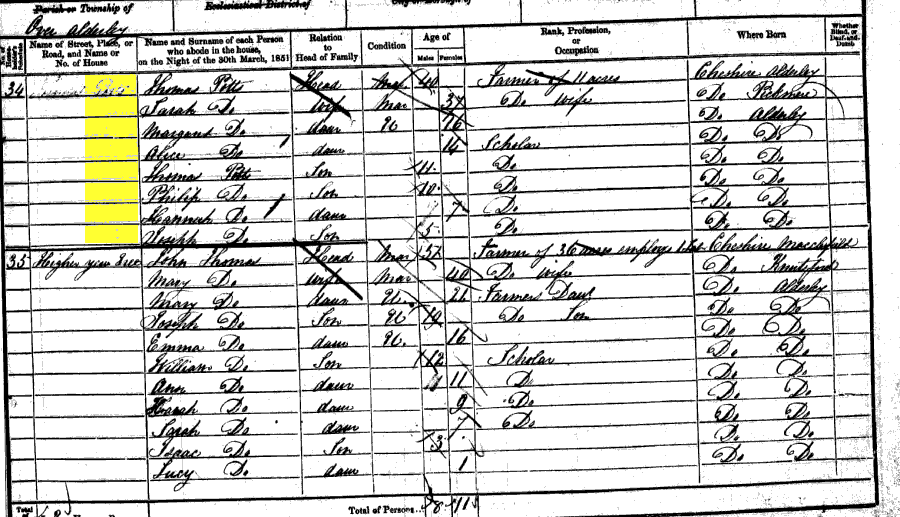 Parish or Township of
Ecclesiastical District of
City or Borough of
Over Alderley
No. of House-holder's Schedule
Name of Street, Place, or Road, and Name or No. of House
Name and Surname of each Person who abode in the house, on the Night of the 30th March, 1851
Relation to Head of Family
Condition
Age of
Males Females
Rank, Profession, or Occupation
Where Born
Whether Blind, or Deaf-and-Dumb
34 Thomas Potts Head Mar 40 Farmer of 11 acres Cheshire Alderley
Sarah Do Wife Mar 37 Do Wife Do
Margaret Do daur U 16 Do Alderley
Alice Do daur 14 Scholar Do Do
Thomas Potts Son 11 Do Do Do
Philip Do Son 10 Do Do Do
Hannah Do daur 7 Do Do Do
Joseph Do Son 5 Do Do Do
35 Higher John Thomas Head Mar 57 Farmer of 36 acres employs 1 Cheshire Macclesfield
Mary Do Wife Mar 40 Do Wife Do Knutsford
Mary Do daur U 21 Farmers Daur Do Alderley
Joseph Do Son U 19 Do Son Do Do
Emma Do daur U 16 Do Do
William Do Son 12 Scholar Do Do
Ann Do daur 11 Do Do Do
Harah Do daur 9 Do Do Do
Sarah Do daur 7 Do Do Do
Isaac Do Son 3 Do Do
Lucy Do daur 1 Do Do
Total
Total of Persons...